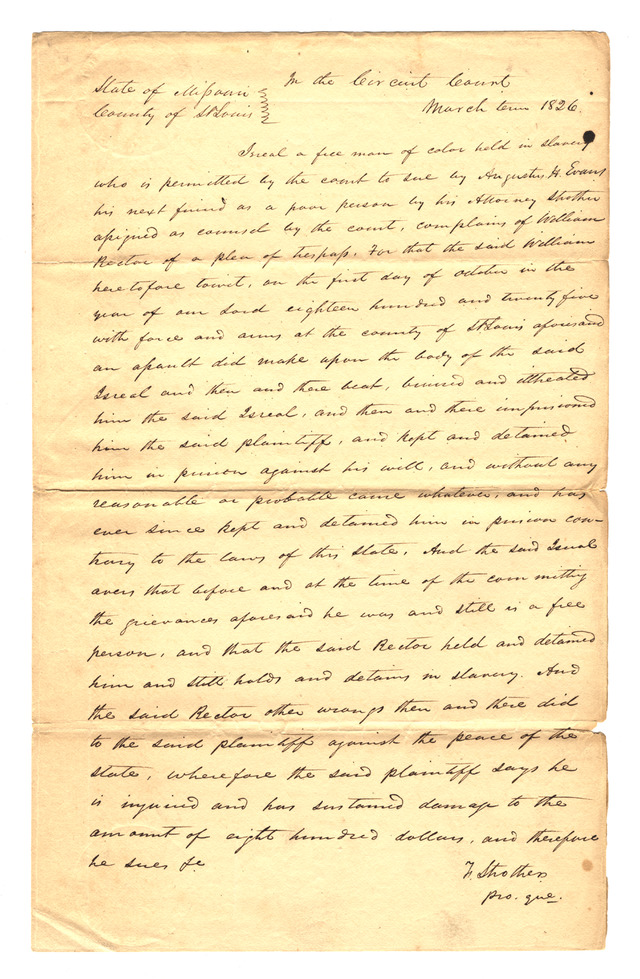 State of Missouri
County of St Louis
In the Circuit Court
March term 1826.
Isreal a free man of color held in slavery
who is permitted by the court to sue by Augustus H. Evans
his next friend as a poor person by his Attorney Strother
assigned as counsel by the court, complains of William
Rector of a plea of trespass, For that the said William
heretofore towit, on the first day of october in the
year of our Lord eighteen hundred and twenty five
with force and arms at the county of St Louis aforesaid
an assault did make upon the body of the said
Isreal and then and there beat, bruised and illtreated
him the said Isreal, and then and there imprisoned
him the said plaintiff, and kept and detained
him in prison against his will, and without any
reasonable or probable cause whatever, and has
ever since kept and detained him in prison con-
trary to the laws of this state. And the said Isreal
avers that before and at the time of the committing
the grievances aforesaid he was and still is a free
person, and that the said Rector held and detained
him and still holds and detains in slavery. And
the said Rector other wrongs then and there did
to the said plaintiff against the peace of the
state, wherefore the said plaintiff says he
is injured and has sustained damage to the
amount of eight hundred dollars, and therefore
he sues &c
F. Strother
pro. que.